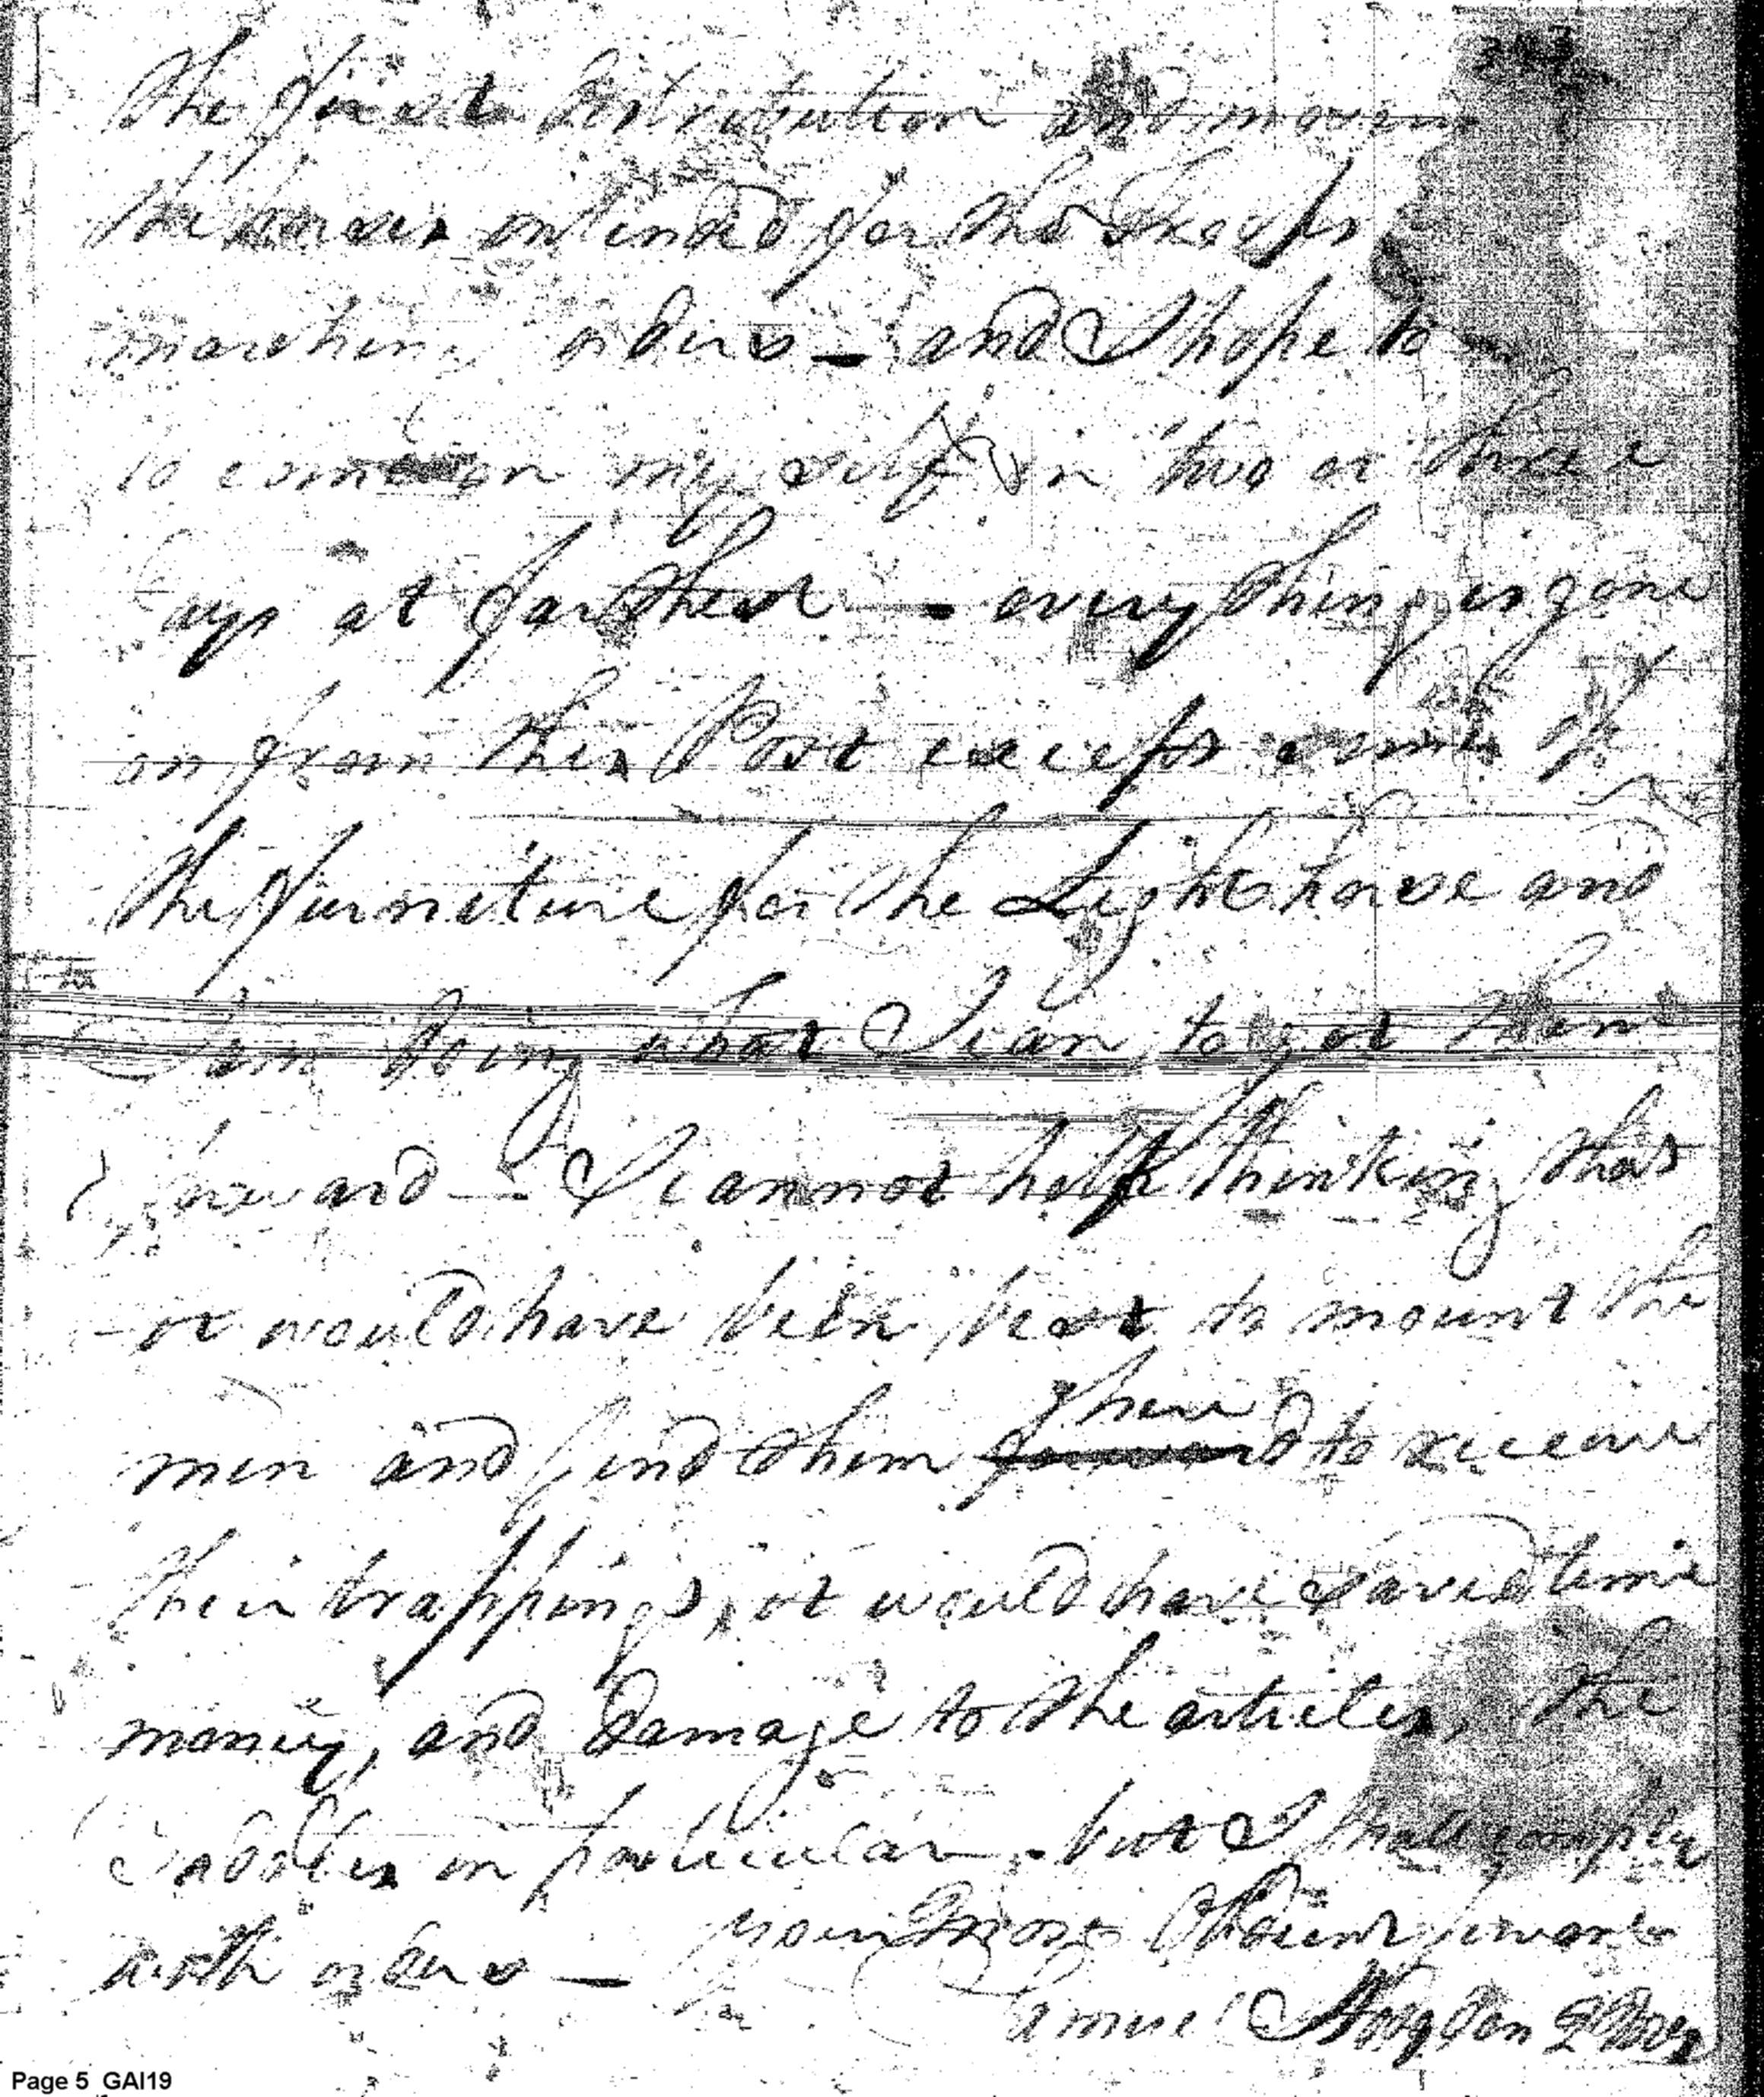 the distribution and
the horses intended for the Troops
marching orders — and I hope to
to come on my self in two or three
ays at farthest — every thing is gone
on from this Post except some of
the furniture for the Light horse and
I am doing what I can to get them
forward — I cannot help thinking that
it would have been best to mount the
here
men and send them forward to receive
their trappings, it would have saved time
money, and damage to the articles, the
Saddles in particular — but I shall comply
with orders — your most Obedient servant
Samuel Hodgdon QMas
Page 5 GAI19